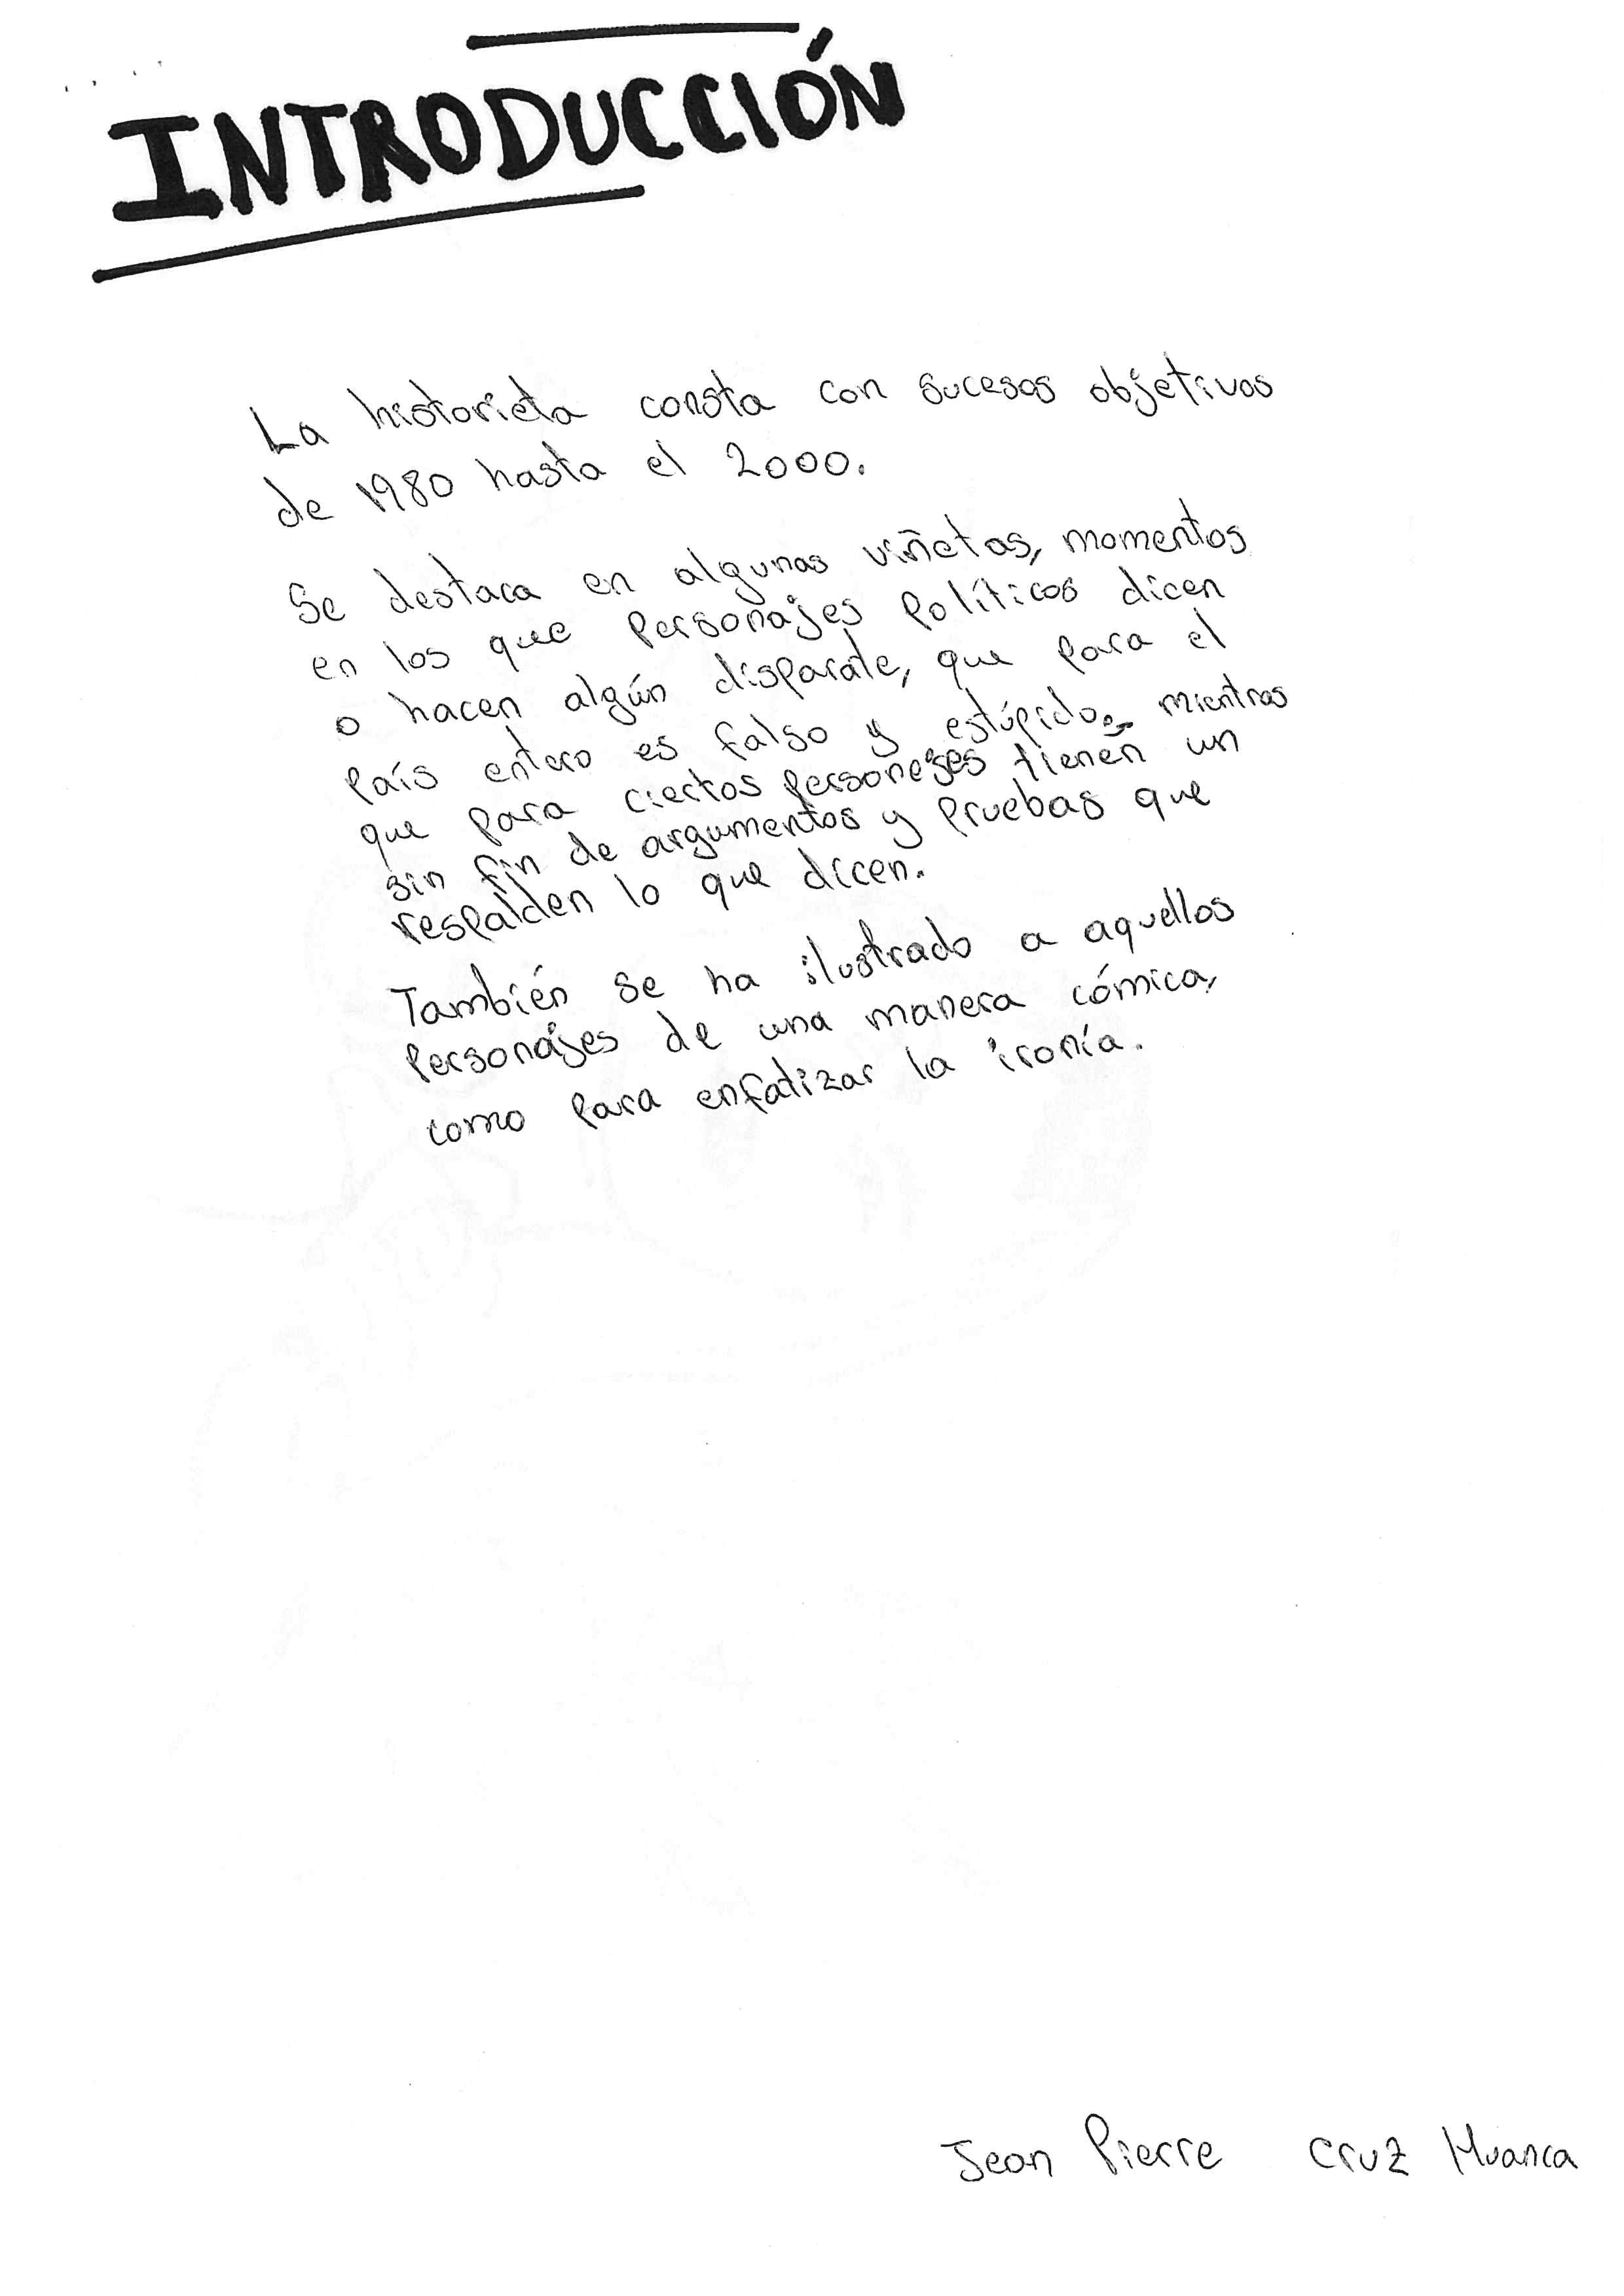 INTRODUCCIÓN
La historieta consta con sucesos objetivos
de 1980 hasta el 2000.
Se destaca en algunas viñetas, momentos
en los que personajes políticos dicen
o hacen algún disparate, que para el
país entero es falso y estúpido, mientras
que para ciertos personeges tienen un
sin fin de argumentos y pruebas que
respalden lo que dicen.
También se ha ilustrado a aquellos
personajes de una manera cómica,
como para enfatizar la ironía.
Jean Pierre Cruz Huanca